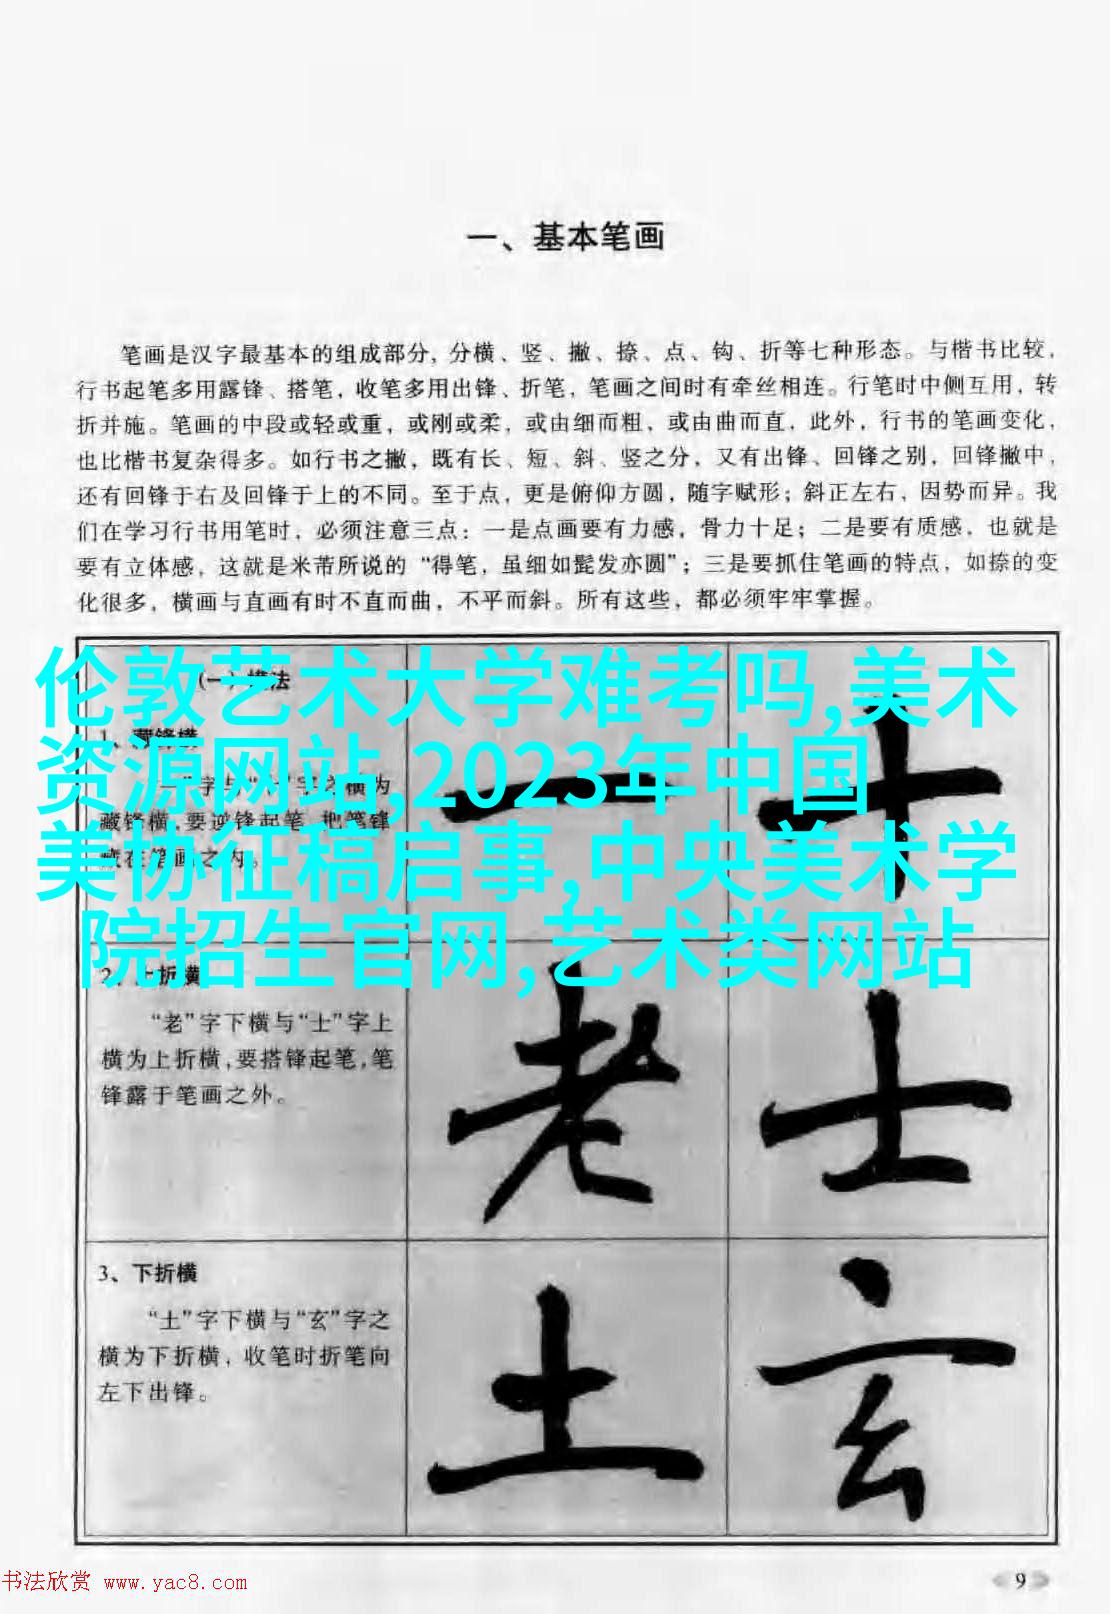 一、基本笔画
笔画是汉字最基本的组成部分，分横、竖、撇、捺、点、钩、折等七种形态。与楷书比较，
行书起笔多用露锋、搭笔，收笔多用出锋、折笔，笔画之间时有牵丝相连。行笔时中侧互用，转
折并施。笔画的中段或轻或重，或刚或柔，或由细而粗，或由曲而直，此外，行书的笔画变化，
也比楷书复杂得多。如行书之撇，既有长、短、斜、竖之分，又有出锋、回锋之别，回锋撇中，
还有回锋于右及回锋于上的不同。至于点，更是俯仰方圆，随字赋形；斜正左右，因势而异。我
们在学习行书用笔时，必须注意三点：一是点画要有力感，骨力十足；二是要有质感，也就是
要有立体感，这就是米芾所说的“得笔，虽细如髭发亦圆”；三是要抓住笔画的特点，如捺的变
化很多，横画与直画有时不直而曲，不平而斜。所有这些，都必须牢牢掌握。
伦敦艺术大学难考吗,美术
资源网站,2023年中国
美协征稿启事,中央美术学
院招生官网,艺术类网站
(一)横法
1、藏锋横
藏锋横,要逆锋起笔,把笔锋
藏在笔画之内。
一 十
2、上折横
“老”字下横与“士”字上
横为上折横,要搭锋起笔,笔
锋露于笔画之外。
老 士
3、下折横
“土”字下横与“玄”字之
横为下折横，收笔时折笔向
左下出锋。
土 玄
书法欣赏 www.yac8.com
9